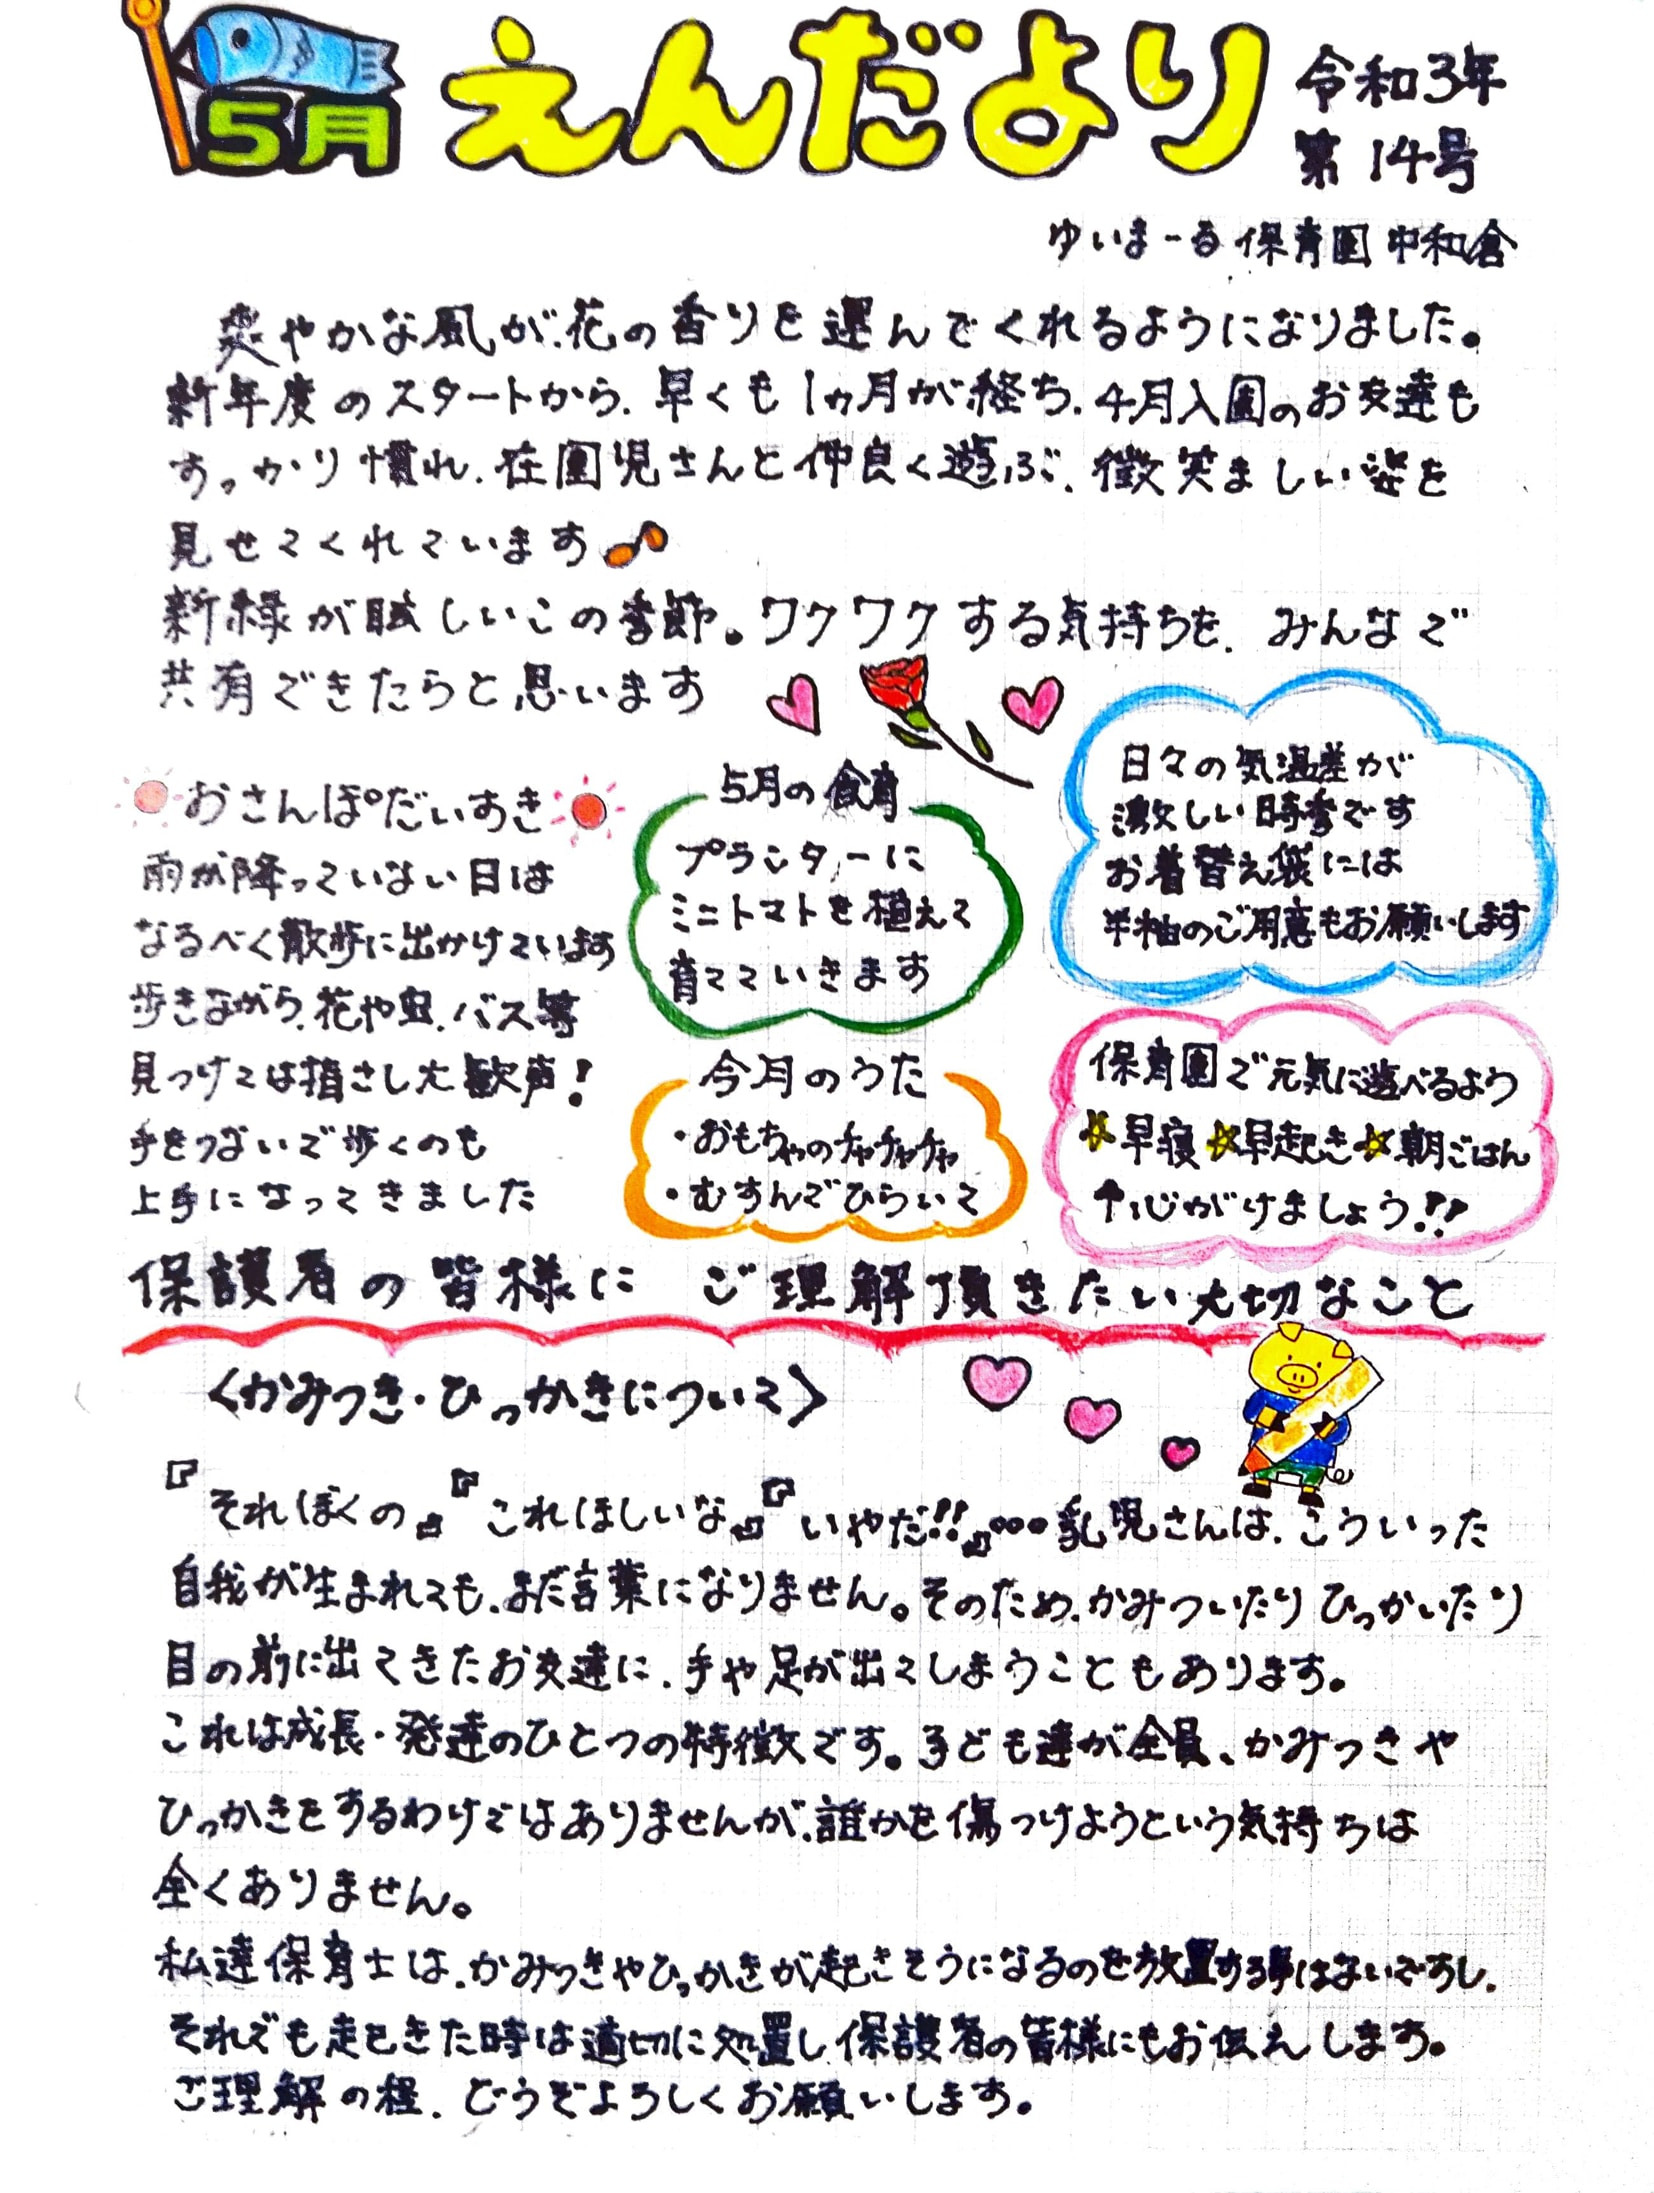 5月
えんだより
令和3年
第14号
ゆいまーる保育園 中和倉
爽やかな風が、花の香りを運んでくれるようになりました。
新年度のスタートから、早くも1ヵ月が経ち、4月入園のお友達も
すっかり慣れ、在園児さんと仲良く遊ぶ、微笑ましい姿を
見せてくれています
新緑が眩しいこの季節。ワクワクする気持ちを、みんなで
共有できたらと思います
おさんぽだいすき
雨が降っていない日は
なるべく散歩に出かけています
歩きながら、花や虫、バス等
見つけては指さした歓声!
手をつないで歩くのも
上手になってきました
5月の食育
プランターに
ミニトマトを植えて
育てていきます
今月のうた
・おもちゃのチャチャチャ
・むすんでひらいて
日々の気温差が
激しい時季です
お着替え袋には
半袖のご用意もお願いします
保育園で元気に遊べるよう
☆早寝☆早起き☆朝ごはん
↑心がけましょう!!
保護者の皆様に ご理解頂きたい大切なこと
〈かみつき・ひっかきについて〉
『それぼくの』『これほしいな』『いやだ!!』…乳児さんは、こういった
自我が生まれても、まだ言葉になりません。そのため、かみついたり ひっかいたり
目の前に出てきたお友達に、手や足が出てしまうこともあります。
これは成長・発達のひとつの特徴です。子ども達が全員、かみつきや
ひっかきをするわけではありませんが、誰かを傷つけようという気持ちは
全くありません。
私達保育士は、かみつきやひっかきが起きそうになるのを放置する事はないですし、
それでも起きた時は適切に処置し、保護者の皆様にもお伝えします。
ご理解の程、どうぞよろしくお願いします。